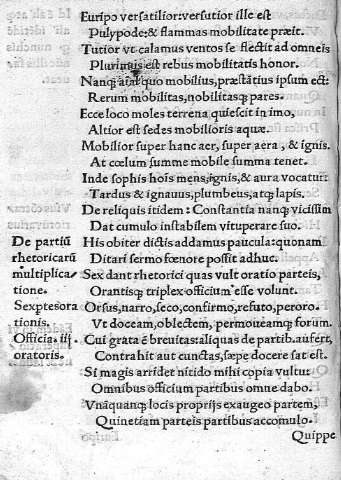 Euripo versatilior: versutior ille est
Pulypode: & flammas mobilitate præit.
Tutior vt calamus ventos se flectit ad omneis
Plurimus est rebus mobilitatis honor.
Nanq; aliud quo mobilius, præstãtius ipsum est:
Rerum mobilitas, nobilitasq; pares.
Ecce loco moles terrena quiescit in imo,
Altior est sedes mobilioris aquæ.
Mobilior super hanc aer, super aera, & ignis.
At cœlum summe mobile summa tenet.
Inde sophis hoĩs mens, ignis, & aura vocatur:
Tardus & ignauus, plumbeus, atq; lapis.
De reliquis itidem: Constantia nanq; vicissim
Dat cumulo instabilem vituperare suo.
De partiũ
rhetoricarũ
multiplica-
tione.
Sex ptes ora
tionis.
Officia.iij.
oratoris.
His obiter dictis addamus paucula: quonam
Ditari sermo fœnore possit adhuc.
Sex dant rhetorici quas vult oratio parteis,
Orantisq; triplex officium esse volunt.
Orsus, narro, seco, confirmo, refuto, peroro.
Vt doceam, oblectem, permoueamq; forum.
Cui grata ẽ breuitas: aliquas de partib. aufert,
Contrahit aut cunctas, sæpe docere sat est.
Si magis arridet nitido mihi copia vultu:
Omnibus officium partibus omne dabo.
Vnãquanq; locis proprijs exaugeo partem,
Quinetiam parteis partibus accumulo.
Quippe